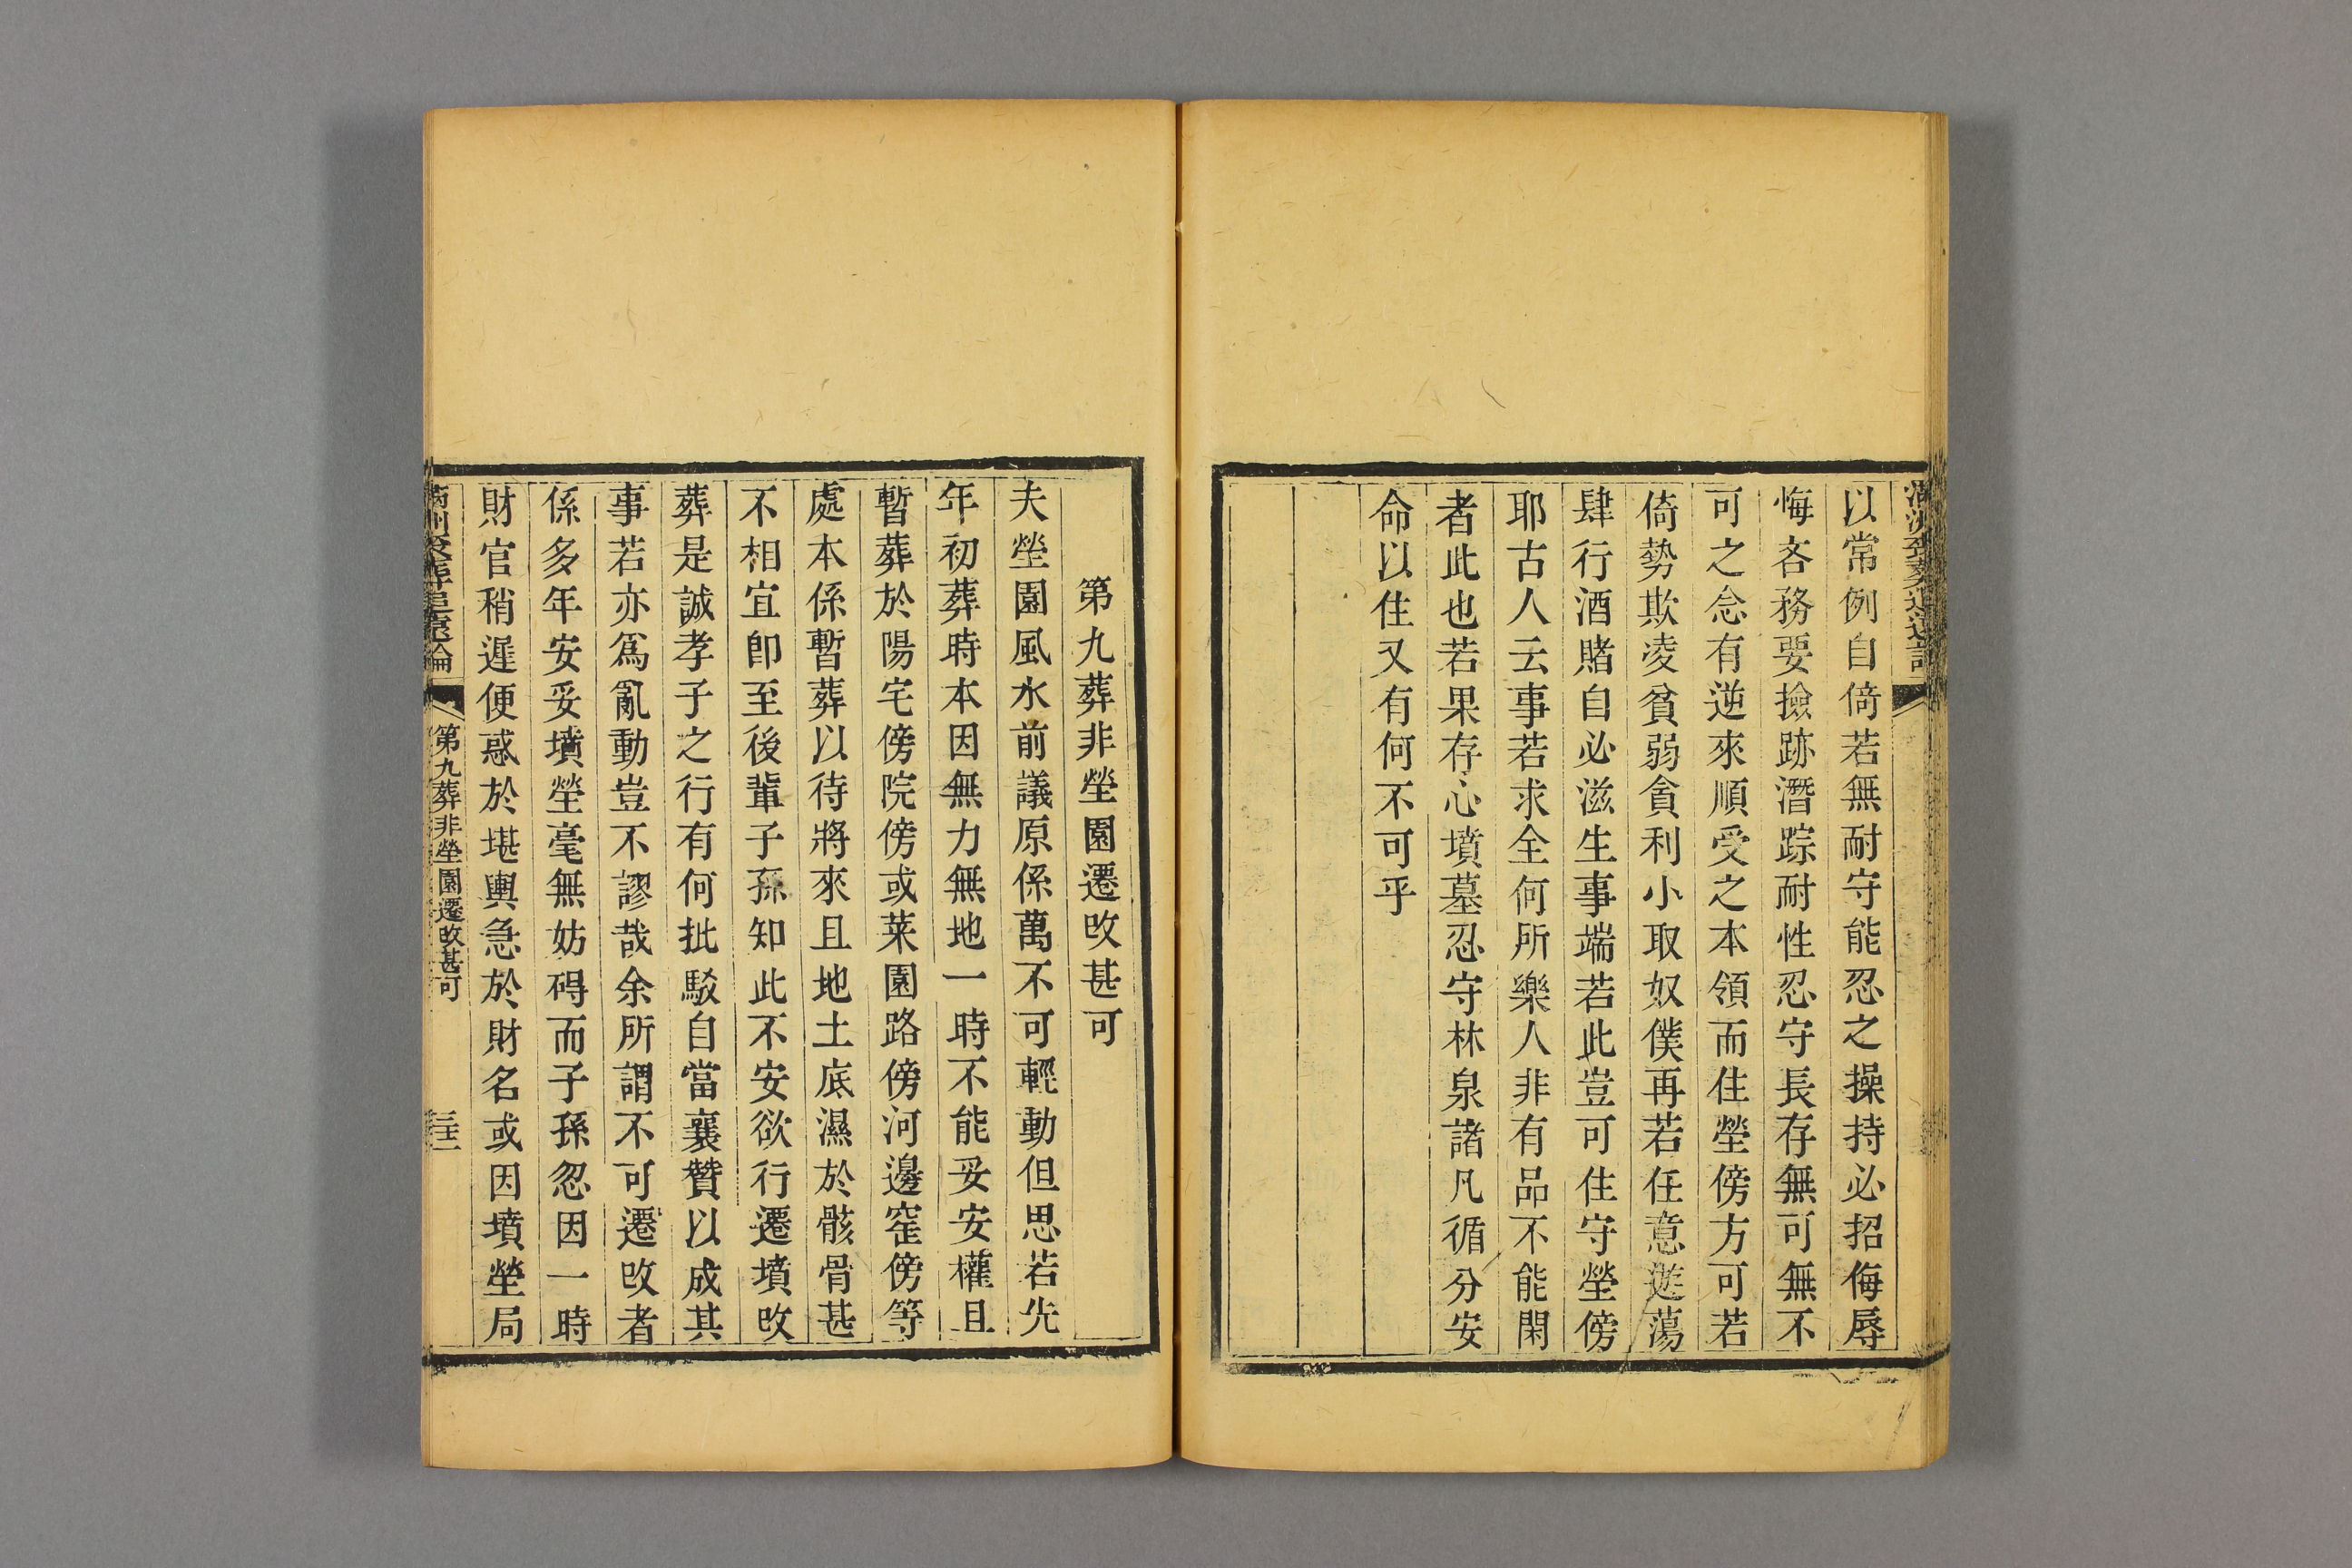 以常例自倚若無耐守能忍之操持必招侮辱
悔吝務要撿跡潛踪耐性忍守長存無可無不
可之念有逆來順受之本領而住塋傍方可若
倚勢欺凌貧弱貪利小取奴僕再若任意遊蕩
肆行酒賭自必滋生事端若此豈可住守塋傍
耶古人云事若求全何所樂人非有品不能閑
者此也若果存心墳墓忍守林泉諸凡循分安
命以住又有何不可乎
第九葬非塋園遷改甚可
夫塋園風水前議原係萬不可輕動但思若先
年初葬時本因無力無地一時不能妥安權且
暫葬於陽宅傍院傍或菜園路傍河邊窑傍等
處本係暫葬以待將來且地土底濕於骸骨甚
不相宜卽至後軰子孫知此不安欲行遷墳改
葬是誠孝子之行有何批駁自當襄贊以成其
事若亦爲亂動豈不謬哉余所謂不可遷改者
係多年安妥墳塋毫無妨碍而子孫忽因一時
財官稍遲便惑於堪輿急於財名或因墳塋局
第九葬非塋園遷改甚可